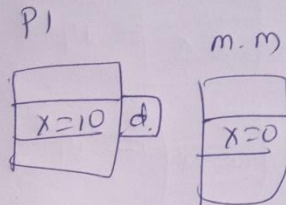 P1
m.m
x=10
d.
x=0